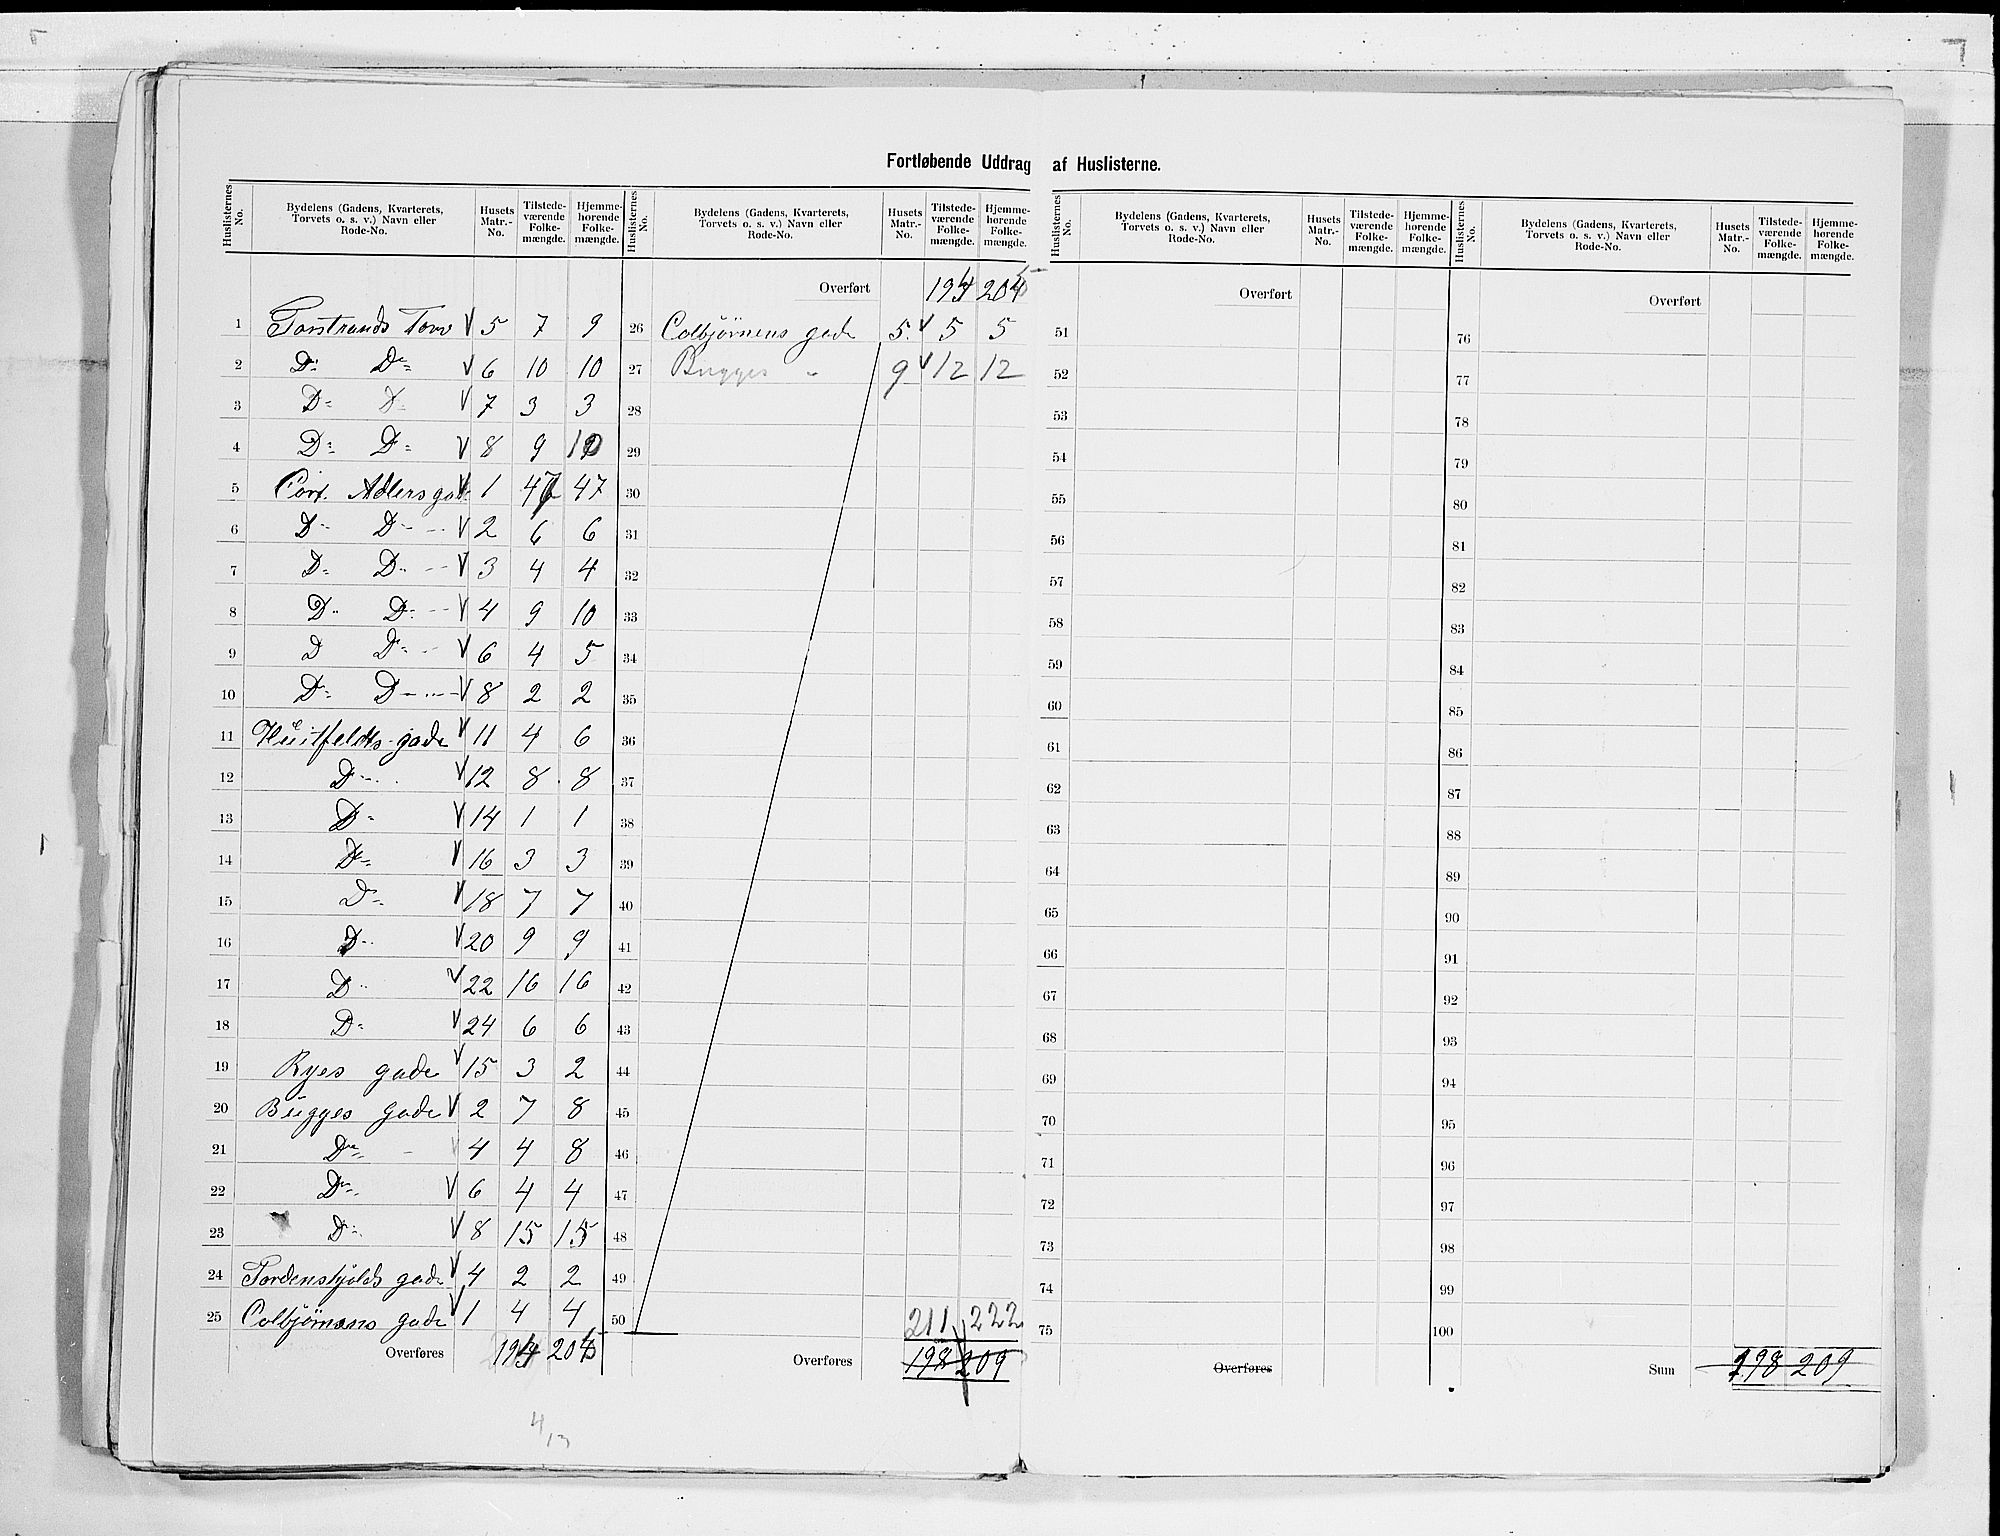 Fortløbende Uddrag af Huslisterne.
Huslisternes No. | Bydelens (Gadens, Kvarterets, Torvets o. s. v.) Navn eller Rode-No. | Husets Matr.-No. | Tilstedeværende Folkemængde. | Hjemmehørende Folkemængde.
1 Torstrands Torv V 5 7 9
2 Do Do V 6 10 10
3 Do Do V 7 3 3
4 Do Do V 8 9 10
5 Cort Adlers gade V 1 47 47
6 Do Do V 2 6 6
7 Do Do V 3 4 4
8 Do Do V 4 9 10
9 Do Do V 6 4 5
10 Do Do V 8 2 2
11 Huitfeldts gade V 11 4 6
12 Do V 12 8 8
13 Do V 14 1 1
14 Do V 16 3 3
15 Do V 18 7 7
16 Do V 20 9 9
17 Do V 22 16 16
18 Do V 24 6 6
19 Ryes gade V 15 3 2
20 Bugges gade V 2 7 8
21 Do V 4 4 8
22 Do V 6 4 4
23 Do V 8 15 15
24 Tordenskjolds gade V 4 2 2
25 Colbjörnsens gade V 1 4 4
Overføres 194 205
4/13
Huslisternes No. | Bydelens (Gadens, Kvarterets, Torvets o. s. v.) Navn eller Rode-No. | Husets Matr.-No. | Tilstedeværende Folkemængde. | Hjemmehørende Folkemængde.
Overført 194 205
26 Colbjörnsens gade 5. V 5 5
27 Bugges " 9 V 12 12
28
29
30
31
32
33
34
35
36
37
38
39
40
41
42
43
44
45
46
47
48
49
50
211 222
Overføres 198 209
Huslisternes No. | Bydelens (Gadens, Kvarterets, Torvets o. s. v.) Navn eller Rode-No. | Husets Matr.-No. | Tilstedeværende Folkemængde. | Hjemmehørende Folkemængde.
Overført
51
52
53
54
55
56
57
58
59
60
61
62
63
64
65
66
67
68
69
70
71
72
73
74
75
Overføres
Huslisternes No. | Bydelens (Gadens, Kvarterets, Torvets o. s. v.) Navn eller Rode-No. | Husets Matr.-No. | Tilstedeværende Folkemængde. | Hjemmehørende Folkemængde.
Overført
76
77
78
79
80
81
82
83
84
85
86
87
88
89
90
91
92
93
94
95
96
97
98
99
100
Sum 198 209